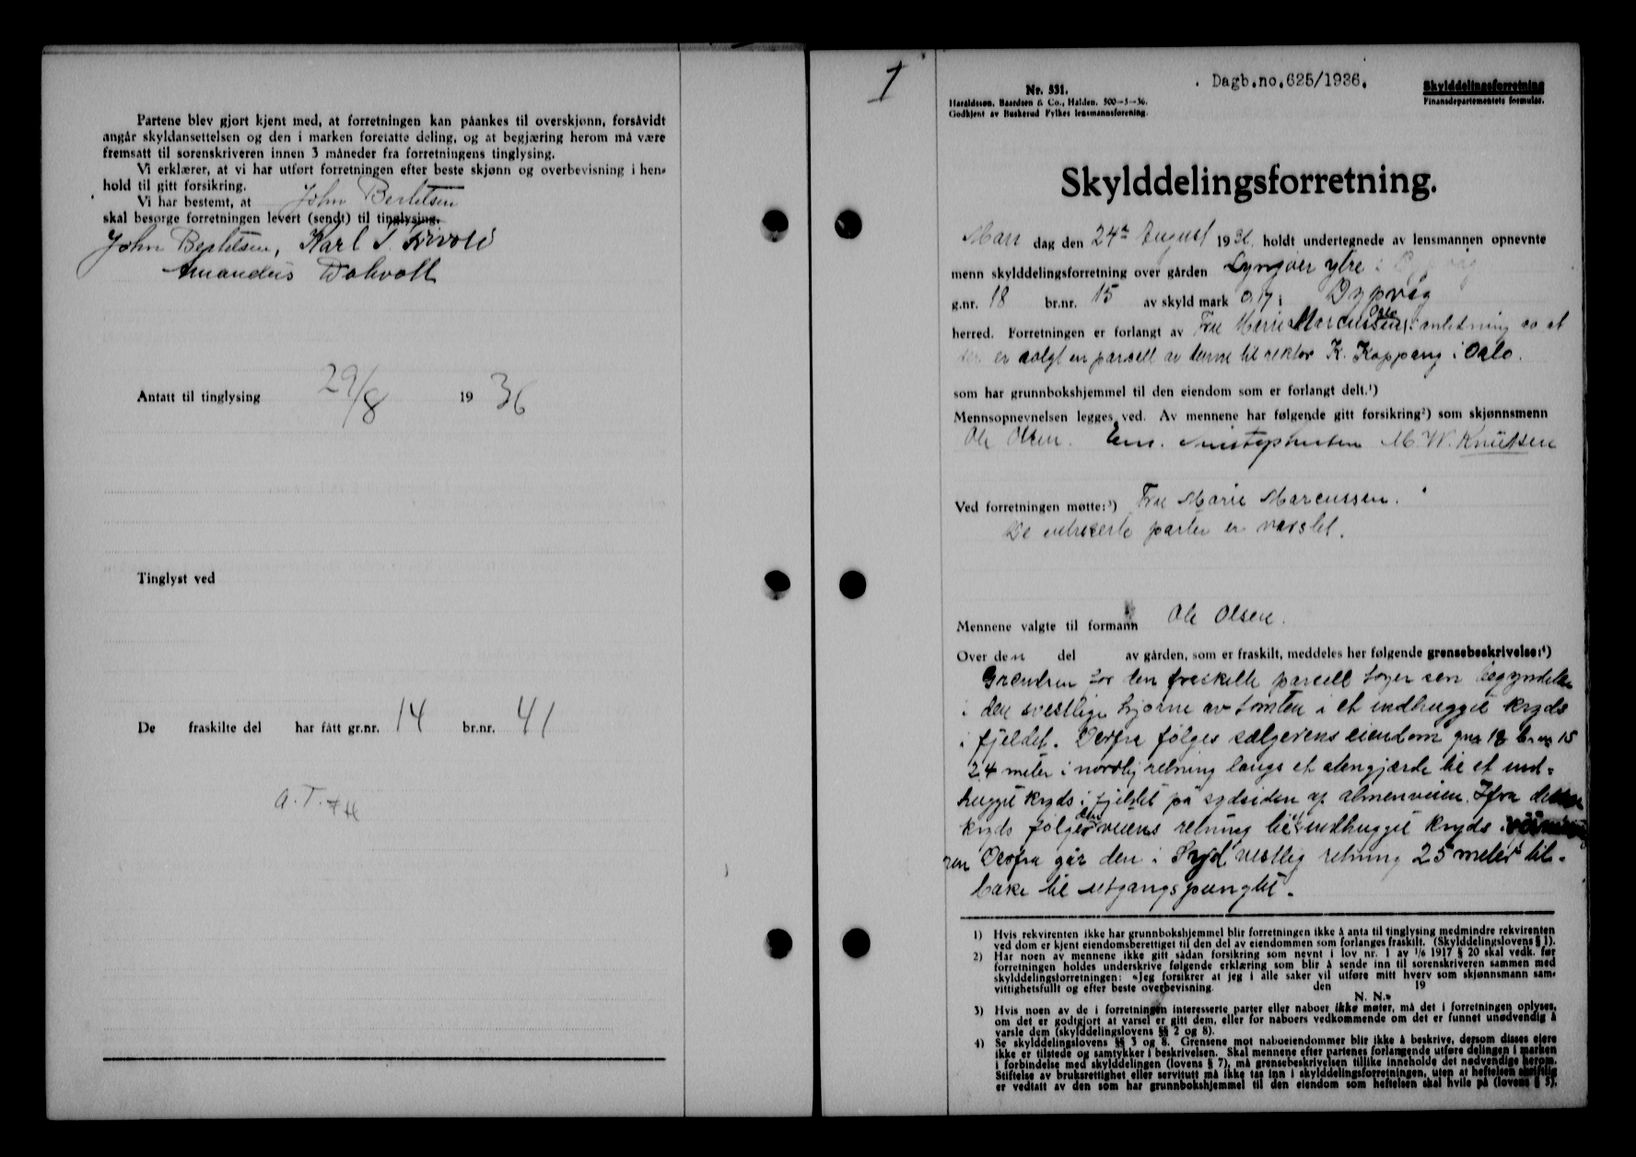 Partene blev gjort kjent med, at forretningen kan påankes til overskjønn, forsåvidt
angår skyldansettelsen og den i marken foretatte deling, og at begjæring herom må være
fremsatt til sorenskriveren innen 3 måneder fra forretningens tinglysing.
Vi erklærer, at vi har utført forretningen efter beste skjønn og overbevisning i hen-
hold til gitt forsikring.
Vi har bestemt, at John Bertelsen
skal besørge forretningen levert (sendt) til tinglysing.
John Bertelsen, Karl
Amandus
Antatt til tinglysing 29/8 1936
Tinglyst ved
De fraskilte del har fått gr.nr. 14 br.nr. 41
a.T.
1
Nr. 531.
Haraldsson, Baardsen & Co., Halden. 500-3-36.
Godkjent av Buskerud Fylkes lensmannsforening.
Dagb.no.625/1936.
Skylddelingsforretning
Finansdepartementets formular.
Skylddelingsforretning.
Man dag den 24de August 1936, holdt undertegnede av lensmannen opnevnte
menn skylddelingsforretning over gården Lyngøer ytre
g.nr. 18 br.nr. 15 av skyld mark 0,17 i Dypvåg
herred. Forretningen er forlangt av Fru Marie Marcussen i anledning av at
der er solgt en parsell av denne til rektor K. Koppang i Oslo.
som har grunnbokshjemmel til den eiendom som er forlangt delt.¹)
Mennsopnevnelsen legges ved. Av mennene har følgende gitt forsikring²) som skjønnsmenn
Ole Olsen. M. W. Knutsen
Ved forretningen møtte:³) Fru Marie Marcussen.
De parter er varslet.
Mennene valgte til formann Ole Olsen.
Over den del av gården, som er fraskilt, meddeles her følgende grensebeskrivelse:⁴)
Grændsen for den fraskilte parsell tager sen begyndelse
i den svestlige hjørne av tomten i et indhugget kryds
i fjeldet. Derfra følges sælgerens eiendom gnr 18 br nr 15
24 meter i nordlig retning langs et stengjærde til et ind-
hugget kryds i fjeldet på sydsiden af almenveien. Ifra
kryds følges den veiens retning til et indhugget kryds i
Derfra går den i Syd vestlig retning 25 meter til-
bake til utgangspungtet.
1) Hvis rekvirenten ikke har grunnbokshjemmel blir forretningen ikke å anta til tinglysing medmindre rekvirenten
ved dom er kjent eiendomsberettiget til den del av eiendommen som forlanges fraskilt. (Skylddelingslovens § 1).
2) Har noen av mennene ikke gitt sådan forsikring som nevnt i lov nr. 1 av 1/6 1917 § 20 skal vedk. før
forretningen holdes underskrive følgende erklæring som blir å sende inn til sorenskriveren sammen med
skylddelingsforretningen: «Jeg forsikrer at jeg i alle saker vil utføre mitt hverv som skjønnsmann sam-
vittighetsfullt og efter beste overbevisning. den 19
N. N.»
3) Hvis noen av de i forretningen interesserte parter eller naboer ikke møter, må det i forretningen oplyses,
om det er godtgjort at varsel er gitt dem, eller for naboers vedkommende om det er funnet unødvendig å
varsle dem (skylddelingslovens §§ 2 og 8).
4) Se skylddelingslovens §§ 3 og 8. Grensene mot naboeiendommer blir ikke å beskrive, dersom disses eiere
ikke er tilstede og samtykker i beskrivelsen. Skal mennene efter partenes forlangende utføre delingen i marken
i forbindelse med skylddelingen (lovens § 7), må grensebeskrivelsen tillike inneholde det nødvendige herom.
Stiftelse av bruksrettighet eller servitutt må ikke tas inn i skylddelingsforretningen, uten at heftelsen skriftlig
er vedtatt av den som har grunnbokshjemmel til den eiendom som heftelsen skal hvile på (lovens § 5).